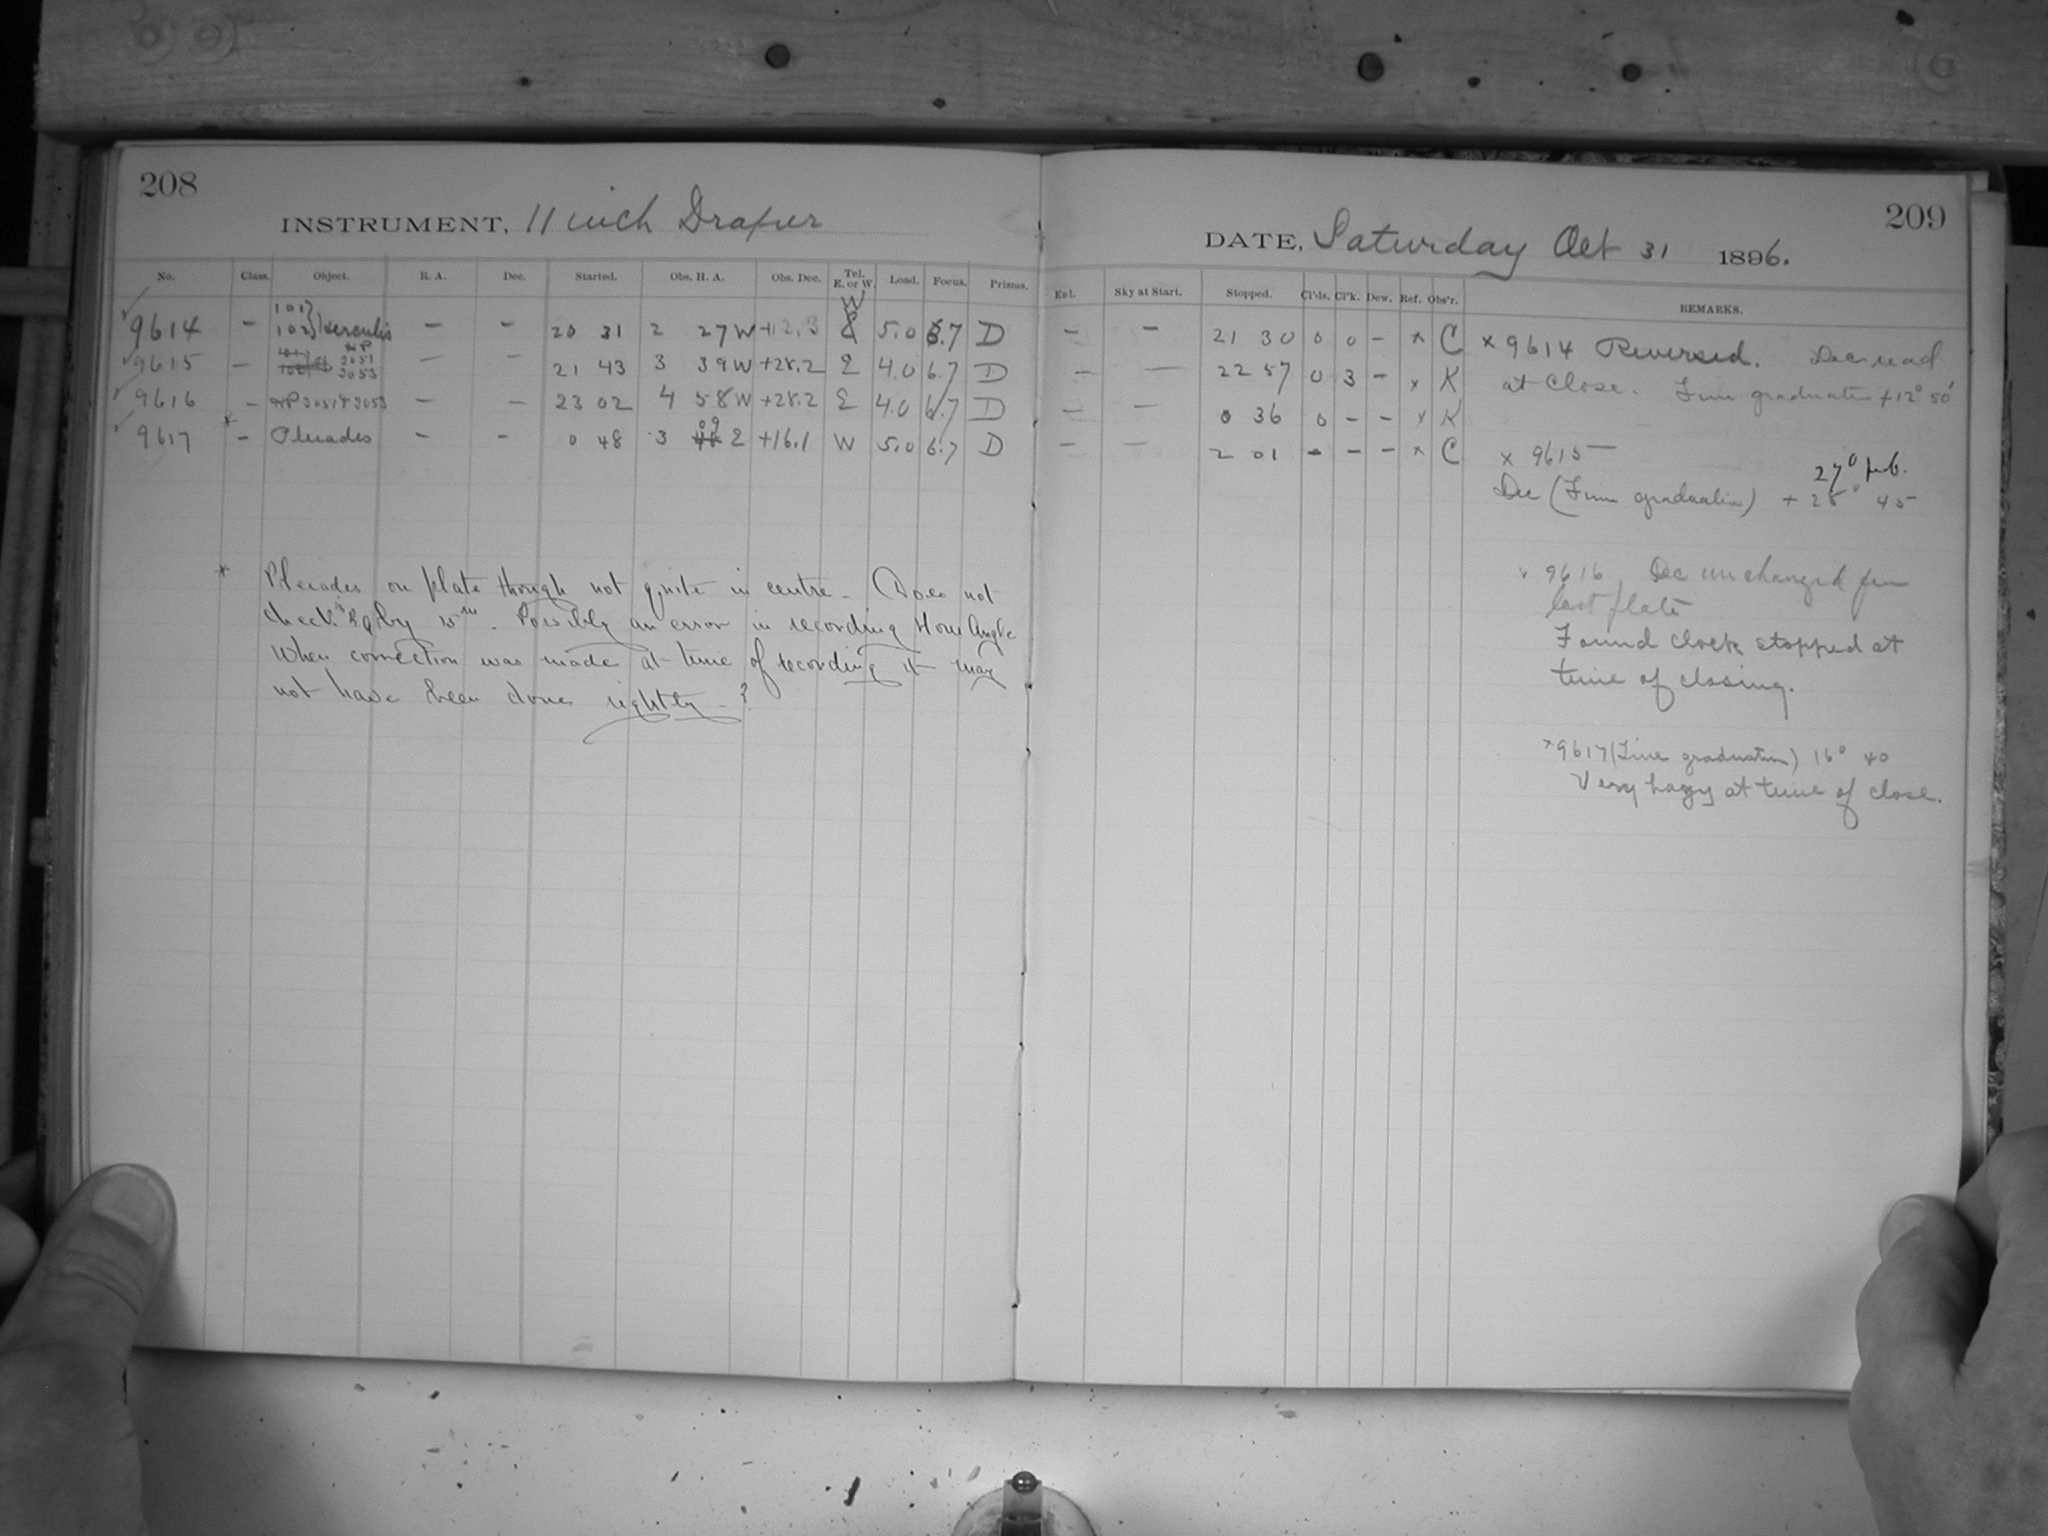 208
INSTRUMENT, 11 inch Draper
No. Class. Object. R. A. Dec. Started. Obs. H. A. Obs. Dec. Tel. E. or W. Load. Focus. Prisms.
9614 – 101 } 102 } Herculis – – 20 31 2 27 W +12.3 W 5.0 6.7 D
9615 – HP 3051 3053 – – 21 43 3 39 W +28.2 E 4.0 6.7 D
9616 – HP 3051 & 3053 – – 23 02 4 58 W +28.2 E 4.0 6.7 D
9617 * – Pleiades – – 0 48 3 09 E +16.1 W 5.0 6.7 D
* Pleiades on plate though not quite in centre – Does not
check by 15m. Possibly an error in recording Hour Angle
When correction was made at time of recording it may
not have been done rightly – ?
209
DATE, Saturday Oct 31 1896.
Enl. Sky at Start. Stopped. Cl'ds. Cl'k. Dew. Ref. Obs'r. REMARKS.
– – 21 30 0 0 – x C
– – 22 57 0 3 – x K
– – 0 36 0 – – x K
– – 2 01 – – – x C
x 9614 Reversed. Dec read
at close. Fine graduation +12° 50'
x 9615 –
27°
Dec (Fine graduation) + 28° 45
x 9616 Dec unchanged from
last plate
Found clock stopped at
time of closing.
x 9617 (Fine graduation) 16° 40
Very hazy at time of close.